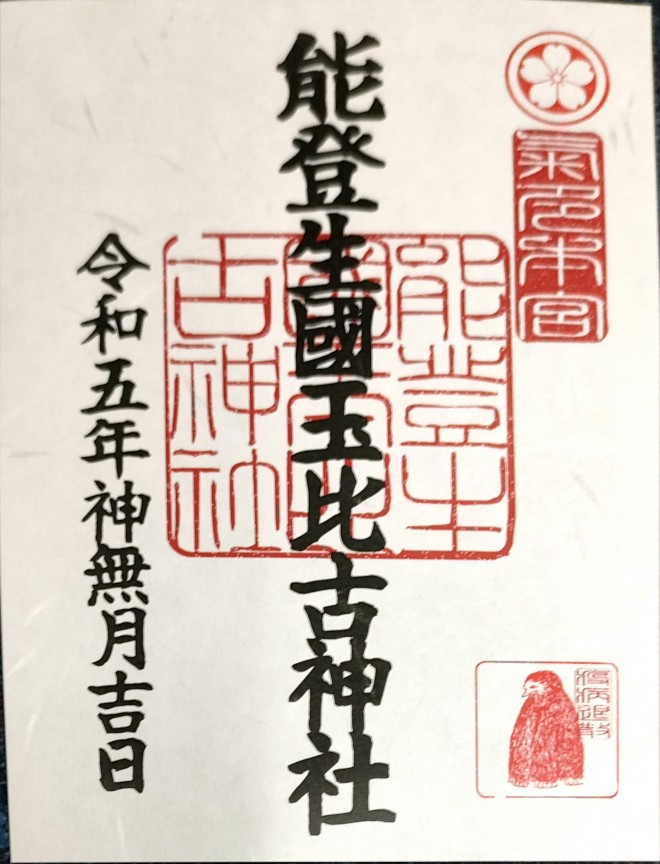 氣多本宮
疫病退散
能登生國玉比古神社
能登生
古神社
令和五年神無月吉日